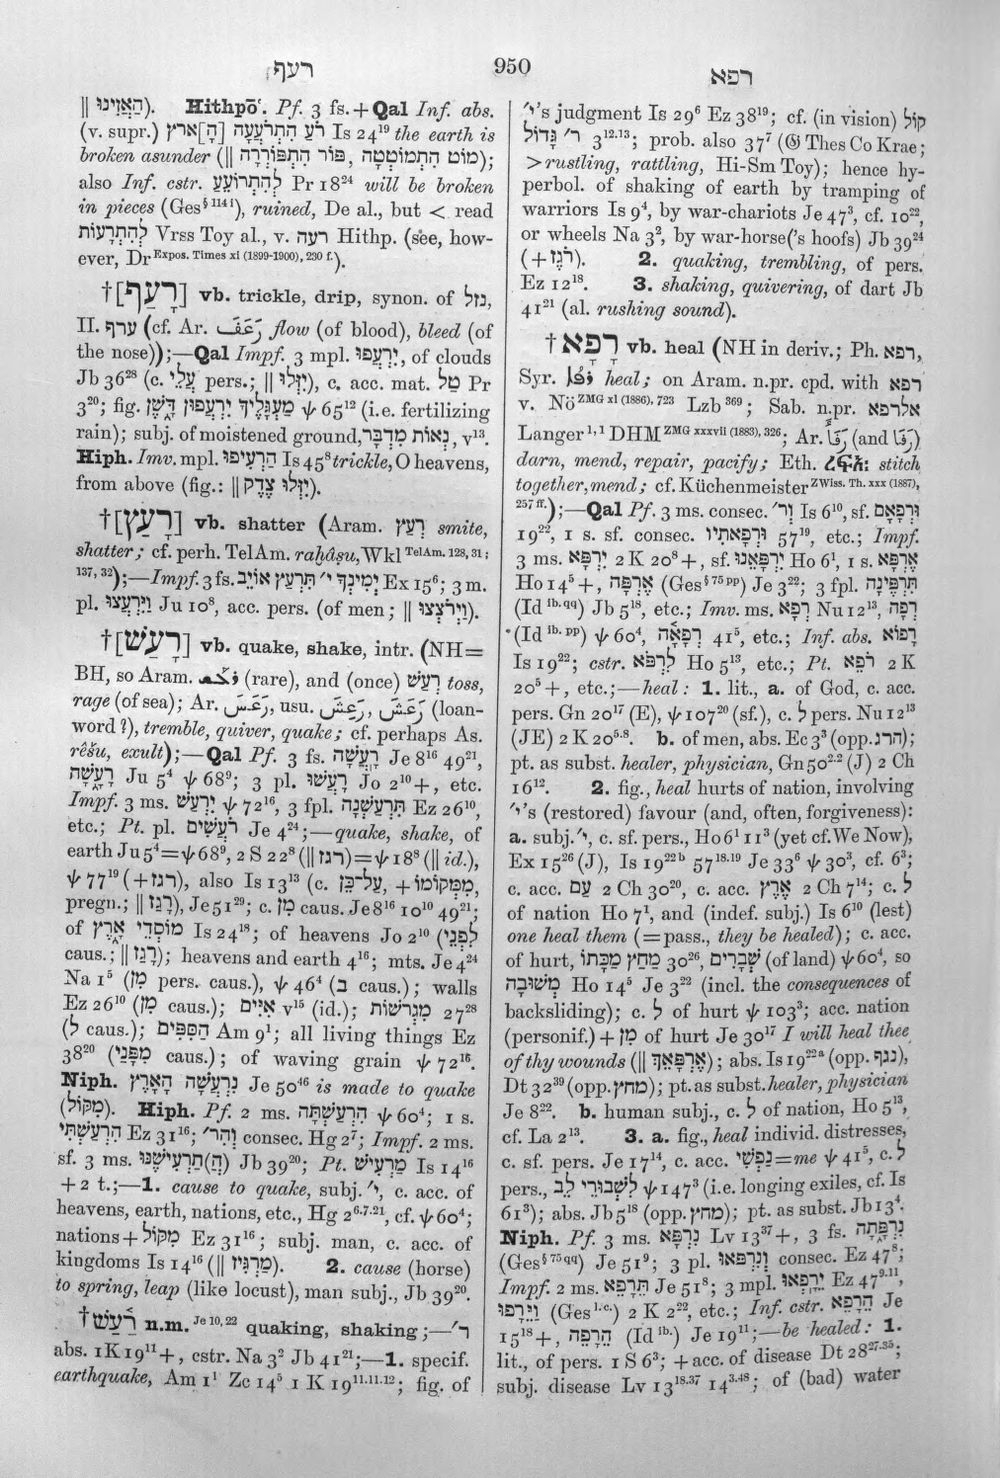 רעף
950
רפא
‖ הַאֲזִינוּ). Hithpō‘. Pf. 3 fs. + Qal Inf. abs.
(v. supr.) רֹעָה הִתְרֹעֲעָה [הָ]ארץ Is 24¹⁹ the earth is
broken asunder (‖ מוֹט הִתְמוֹטְטָה, פּוֹר הִתְפּוֹרְרָה);
also Inf. cstr. לְהִתְרוֹעֵעַ Pr 18²⁴ will be broken
in pieces (Ges§ 114 i), ruined, De al., but < read
לְהִתְרָעוֹת Vrss Toy al., v. רעה Hithp. (see, how-
ever, Dr Expos. Times xi (1899-1900), 230 f.).
†[רָעַף] vb. trickle, drip, synon. of נזל,
II. ערף (cf. Ar. رَعَفَ flow (of blood), bleed (of
the nose));—Qal Impf. 3 mpl. יִרְעֲפוּ, of clouds
Jb 36²⁸ (c. עֲלֵי pers.; ‖ יִזְּלוּ), c. acc. mat. טַל Pr
3²⁰; fig. מַעְגָּלֶיךָ יִרְעֲפוּן דָּשֶׁן ψ 65¹² (i.e. fertilizing
rain); subj. of moistened ground, נְאוֹת מִדְבָּר, v¹³.
Hiph. Imv. mpl. הַרְעִיפוּ Is 45⁸ trickle, O heavens,
from above (fig.: ‖ יִזְּלוּ צֶדֶק).
†[רָעַץ] vb. shatter (Aram. רְעַץ smite,
shatter; cf. perh. TelAm. raḫâṣu, Wkl TelAm. 128, 31;
137, 32);—Impf. 3 fs. יְמִינְךָ י׳ תִּרְעַץ אוֹיֵב Ex 15⁶; 3 m.
pl. וַיִּרְעֲצוּ Ju 10⁸, acc. pers. (of men; ‖ וַיְרֹצְצוּ).
†[רָעַשׁ] vb. quake, shake, intr. (NH=
BH, so Aram. (rare), and (once) רְעַשׁ toss,
rage (of sea); Ar. رَعَشَ, usu. رَعِشَ, رَعَسَ (loan-
word?), tremble, quiver, quake; cf. perhaps As.
rêšu, exult);—Qal Pf. 3 fs. רָעֲשָׁה Je 8¹⁶ 49²¹,
רָעָשָׁה Ju 5⁴ ψ 68⁹; 3 pl. רָעֲשׁוּ Jo 2¹⁰ +, etc.
Impf. 3 ms. יִרְעַשׁ ψ 72¹⁶, 3 fpl. תִּרְעַשְׁנָה Ez 26¹⁰,
etc.; Pt. pl. רֹעֲשִׁים Je 4²⁴;—quake, shake, of
earth Ju 5⁴=ψ 68⁹, 2 S 22⁸ (‖ רגז)=ψ 18⁸ (‖ id.),
ψ 77¹⁹ (+ רגז), also Is 13¹³ (c. עַל־כֵּן, + מִמְּקוֹמוֹ,
pregn.; ‖ רָגַז), Je 51²⁹; c. מִן caus. Je 8¹⁶ 10¹⁰ 49²¹;
of מוֹסְדֵי אָרֶץ Is 24¹⁸; of heavens Jo 2¹⁰ (לְפָנָי
caus.; ‖ רָגַז); heavens and earth 4¹⁶; mts. Je 4²⁴
Na 1⁵ (מִן pers. caus.), ψ 46⁴ (ב caus.); walls
Ez 26¹⁰ (מִן caus.); אִיִּים v¹⁵ (id.); מִגְרֹשׁוֹת 27²⁸
(ל caus.); הַסִּפִּים Am 9¹; all living things Ez
38²⁰ (מִפָּנַי caus.); of waving grain ψ 72¹⁶.
Niph. נִרְעֲשָׁה הָאָרֶץ Je 50⁴⁶ is made to quake
(מִקּוֹל). Hiph. Pf. 2 ms. הִרְעַשְׁתָּה ψ 60⁴; 1 s.
הִרְעַשְׁתִּי Ez 31¹⁶; וְהִר׳ consec. Hg 2⁷; Impf. 2 ms.
sf. 3 ms. (הֲ)תַרְעִישֶׁנּוּ Jb 39²⁰; Pt. מַרְעִישׁ Is 14¹⁶
+ 2 t.;—1. cause to quake, subj. י׳, c. acc. of
heavens, earth, nations, etc., Hg 2⁶·⁷·²¹, cf. ψ 60⁴;
nations + מִקּוֹל Ez 31¹⁶; subj. man, c. acc. of
kingdoms Is 14¹⁶ (‖ מַרְגִּיז). 2. cause (horse)
to spring, leap (like locust), man subj., Jb 39²⁰.
†רַעַשׁ n.m. Je 10, 22 quaking, shaking;—ר׳
abs. 1 K 19¹¹ +, cstr. Na 3² Jb 41²¹;—1. specif.
earthquake, Am 1¹ Zc 14⁵ 1 K 19¹¹·¹¹·¹²; fig. of
י׳'s judgment Is 29⁶ Ez 38¹⁹; cf. (in vision) קוֹל
ר׳ גָּדוֹל 3¹²·¹³; prob. also 37⁷ (𝔊 Thes Co Krae;
> rustling, rattling, Hi-Sm Toy); hence hy-
perbol. of shaking of earth by tramping of
warriors Is 9⁴, by war-chariots Je 47³, cf. 10²²,
or wheels Na 3², by war-horse('s hoofs) Jb 39²⁴
(+ רֹגֶז). 2. quaking, trembling, of pers.
Ez 12¹⁸. 3. shaking, quivering, of dart Jb
41²¹ (al. rushing sound).
†רָפָא vb. heal (NH in deriv.; Ph. רפא,
Syr. heal; on Aram. n.pr. cpd. with רפא
v. Nö ZMG xl (1886), 723 Lzb 369; Sab. n.pr. אלרפא
Langer 1, 1 DHM ZMG xxxvii (1883), 326; Ar. رَفَأَ (and رَفَا)
darn, mend, repair, pacify; Eth. ረፍአ: stitch
together, mend; cf. Küchenmeister ZWiss. Th. xxx (1887),
257 ff.);—Qal Pf. 3 ms. consec. וְר׳ Is 6¹⁰, sf. וּרְפָאָם
19²², 1 s. sf. consec. וּרְפָאתִיו 57¹⁹, etc.; Impf.
3 ms. יִרְפָּא 2 K 20⁸ +, sf. יִרְפָּאֵנוּ Ho 6¹, 1 s. אֶרְפָּא
Ho 14⁵ +, אֶרְפָּה (Ges§ 75 pp) Je 3²²; 3 fpl. תִּרְפֶּינָה
(Id ib. qq) Jb 5¹⁸, etc.; Imv. ms. רְפָא Nu 12¹³, רְפָה
(Id ib. pp) ψ 60⁴, רְפָאָה 41⁵, etc.; Inf. abs. רָפוֹא
Is 19²²; cstr. לִרְפֹּא Ho 5¹³, etc.; Pt. רֹפֵא 2 K
20⁵ +, etc.;—heal: 1. lit., a. of God, c. acc.
pers. Gn 20¹⁷ (E), ψ 107²⁰ (sf.), c. ל pers. Nu 12¹³
(JE) 2 K 20⁵·⁸. b. of men, abs. Ec 3³ (opp. הרג);
pt. as subst. healer, physician, Gn 50²·² (J) 2 Ch
16¹². 2. fig., heal hurts of nation, involving
י׳'s (restored) favour (and, often, forgiveness):
a. subj. י׳, c. sf. pers., Ho 6¹ 11³ (yet cf. We Now),
Ex 15²⁶ (J), Is 19²²ᵇ 57¹⁸·¹⁹ Je 33⁶ ψ 30³, cf. 6³;
c. acc. עַם 2 Ch 30²⁰, c. acc. אֶרֶץ 2 Ch 7¹⁴; c. ל
of nation Ho 7¹, and (indef. subj.) Is 6¹⁰ (lest)
one heal them (=pass., they be healed); c. acc.
of hurt, מַחַץ מַכָּתוֹ 30²⁶, שְׁבָרִים (of land) ψ 60⁴, so
מְשׁוּבָה Ho 14⁵ Je 3²² (incl. the consequences of
backsliding); c. ל of hurt ψ 103³; acc. nation
(personif.) + מִן of hurt Je 30¹⁷ I will heal thee
of thy wounds (‖ אֶרְפָּאֵךְ); abs. Is 19²²ᵃ (opp. נגף),
Dt 32³⁹ (opp. מחץ); pt. as subst. healer, physician
Je 8²². b. human subj., c. ל of nation, Ho 5¹³,
cf. La 2¹³. 3. a. fig., heal individ. distresses,
c. sf. pers. Je 17¹⁴, c. acc. נַפְשִׁי=me ψ 41⁵, c. ל
pers., לִשְׁבוּרֵי לֵב ψ 147³ (i.e. longing exiles, cf. Is
61³); abs. Jb 5¹⁸ (opp. מחץ); pt. as subst. Jb 13⁴.
Niph. Pf. 3 ms. נִרְפָּא Lv 13³⁷ +, 3 fs. נִרְפָּתָה
(Ges§ 75 qq) Je 51⁹; 3 pl. וְנִרְפְּאוּ consec. Ez 47⁸;
Impf. 2 ms. תֵּרָפֵא Je 51⁸; 3 mpl. יֵרָפְאוּ Ez 47⁹·¹¹,
וַיֵּרָפוּ (Ges l.c.) 2 K 2²², etc.; Inf. cstr. הֵרָפֵא Je
15¹⁸ +, הֵרָפֵה (Id ib.) Je 19¹¹;—be healed: 1.
lit., of pers. 1 S 6³; + acc. of disease Dt 28²⁷·³⁵;
subj. disease Lv 13¹⁸·³⁷ 14³·⁴⁸; of (bad) water